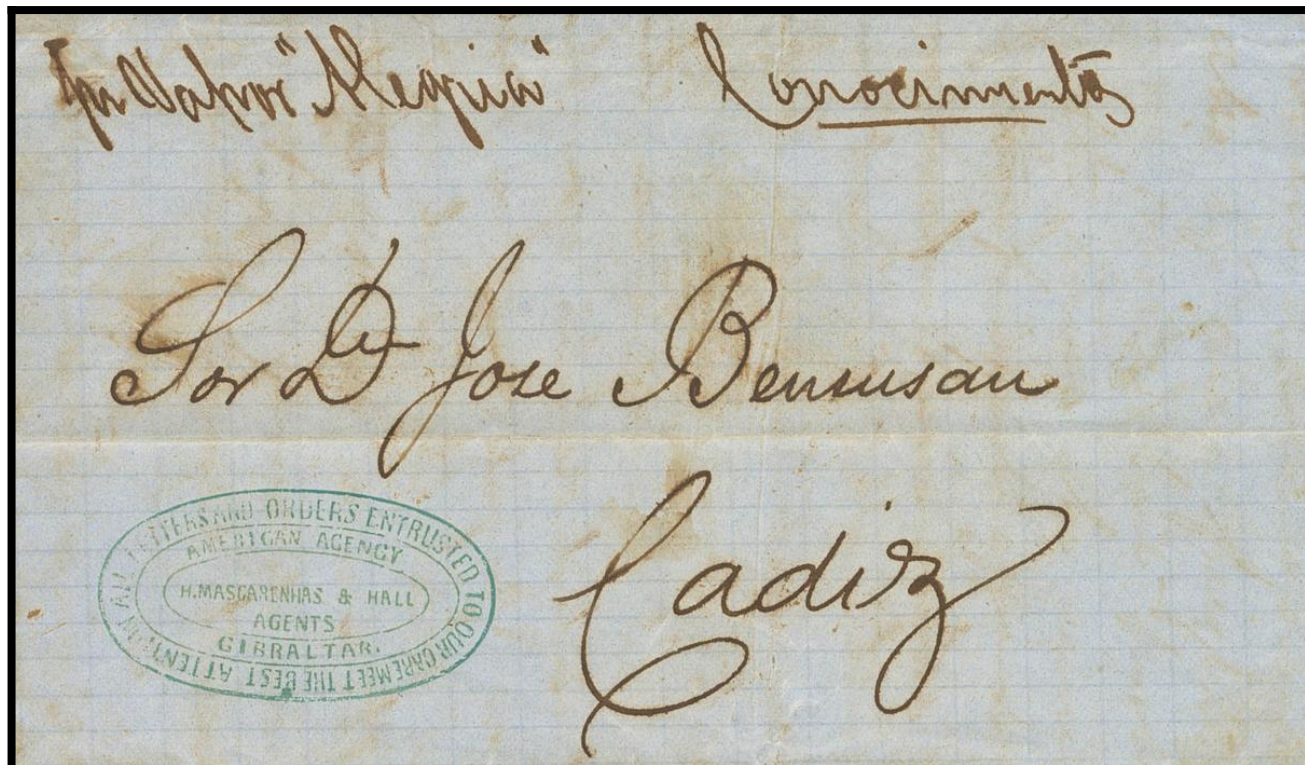 Por Vapor "Alegria" Conocimientos
Sor Dn Jose Bensusan
Cadiz
ALL LETTERS AND ORDERS ENTRUSTED TO OUR CARE MEET THE BEST ATTENTION
AMERICAN AGENCY
H.MASCARENHAS & HALL
AGENTS
GIBRALTAR.